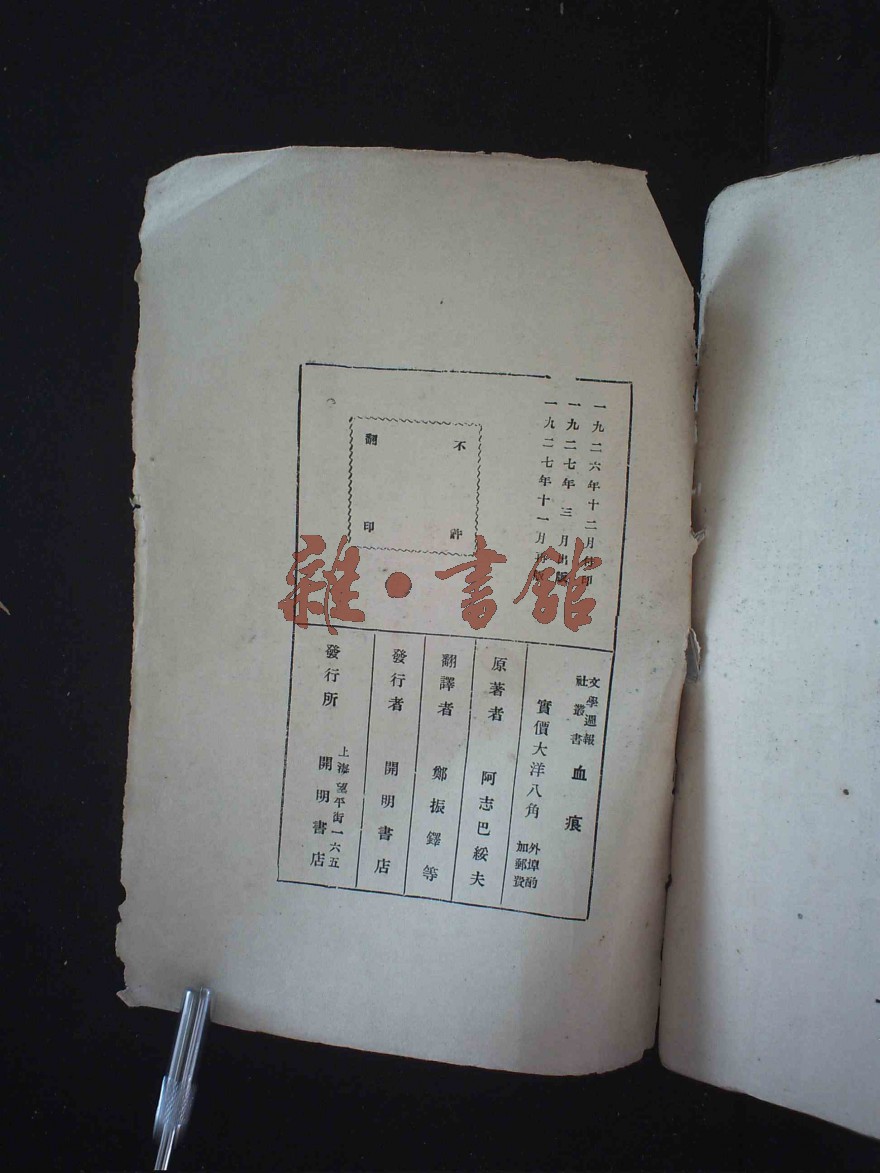 一九二六年十二月付印
一九二七年三月出版
一九二七年十一月再版
不許
翻印
文學週報
社叢書
血痕
實價大洋八角
外埠酌
加郵費
原著者 阿志巴綏夫
翻譯者 鄭振鐸等
發行者 開明書店
發行所 上海望平街一六五
開明書店
雜·書館